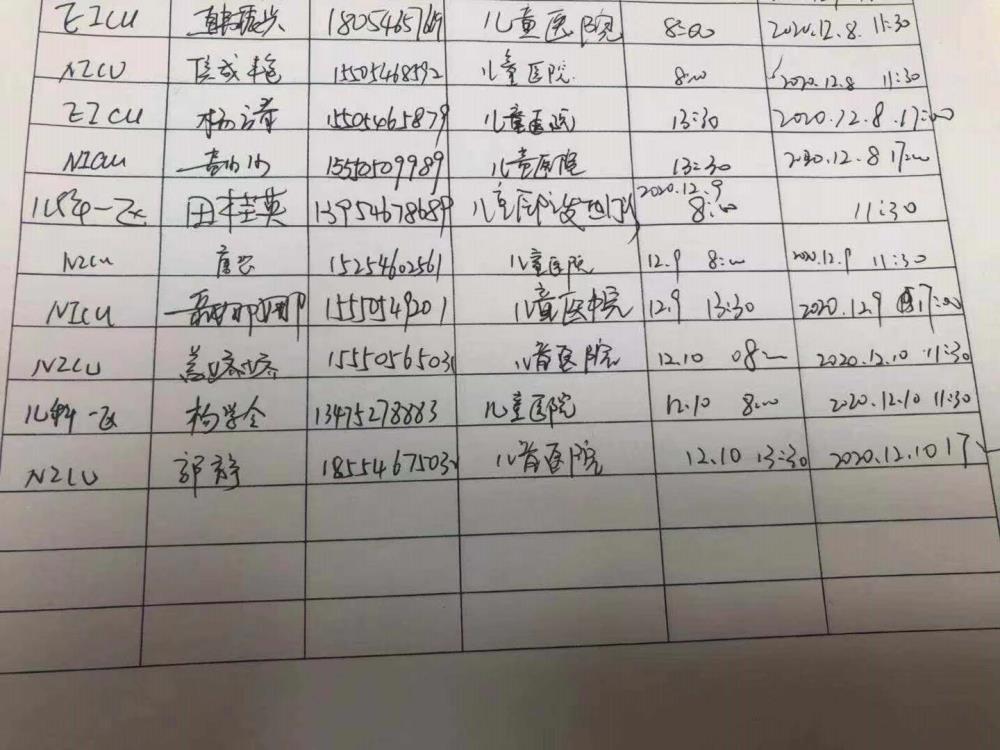 EICU 韩振兴 儿童医院 8:00 2020.12.8. 11:30
NICU 15505468592 儿童医院 8:00 2020.12.8 11:30
EICU 杨涛 15505465879 儿童医院 13:30 2020.12.8.17:00
NICU 15550509989 儿童医院 13:30 2020.12.8 17:00
儿科一区 田桂英 13954678689 2020.12.9 8:00 11:30
NICU 15254602561 儿童医院 12.9 8:00 2020.12.9 11:30
NICU 儿童医院 12.9 13:30 2020.12.9 17:00
NICU 儿童医院 12.10 08:00 2020.12.10 11:30
儿科一区 杨学全 13475278883 儿童医院 12.10 8:00 2020.12.10 11:30
NICU 郭静 18554675032 儿童医院 12.10 13:30 2020.12.10 17